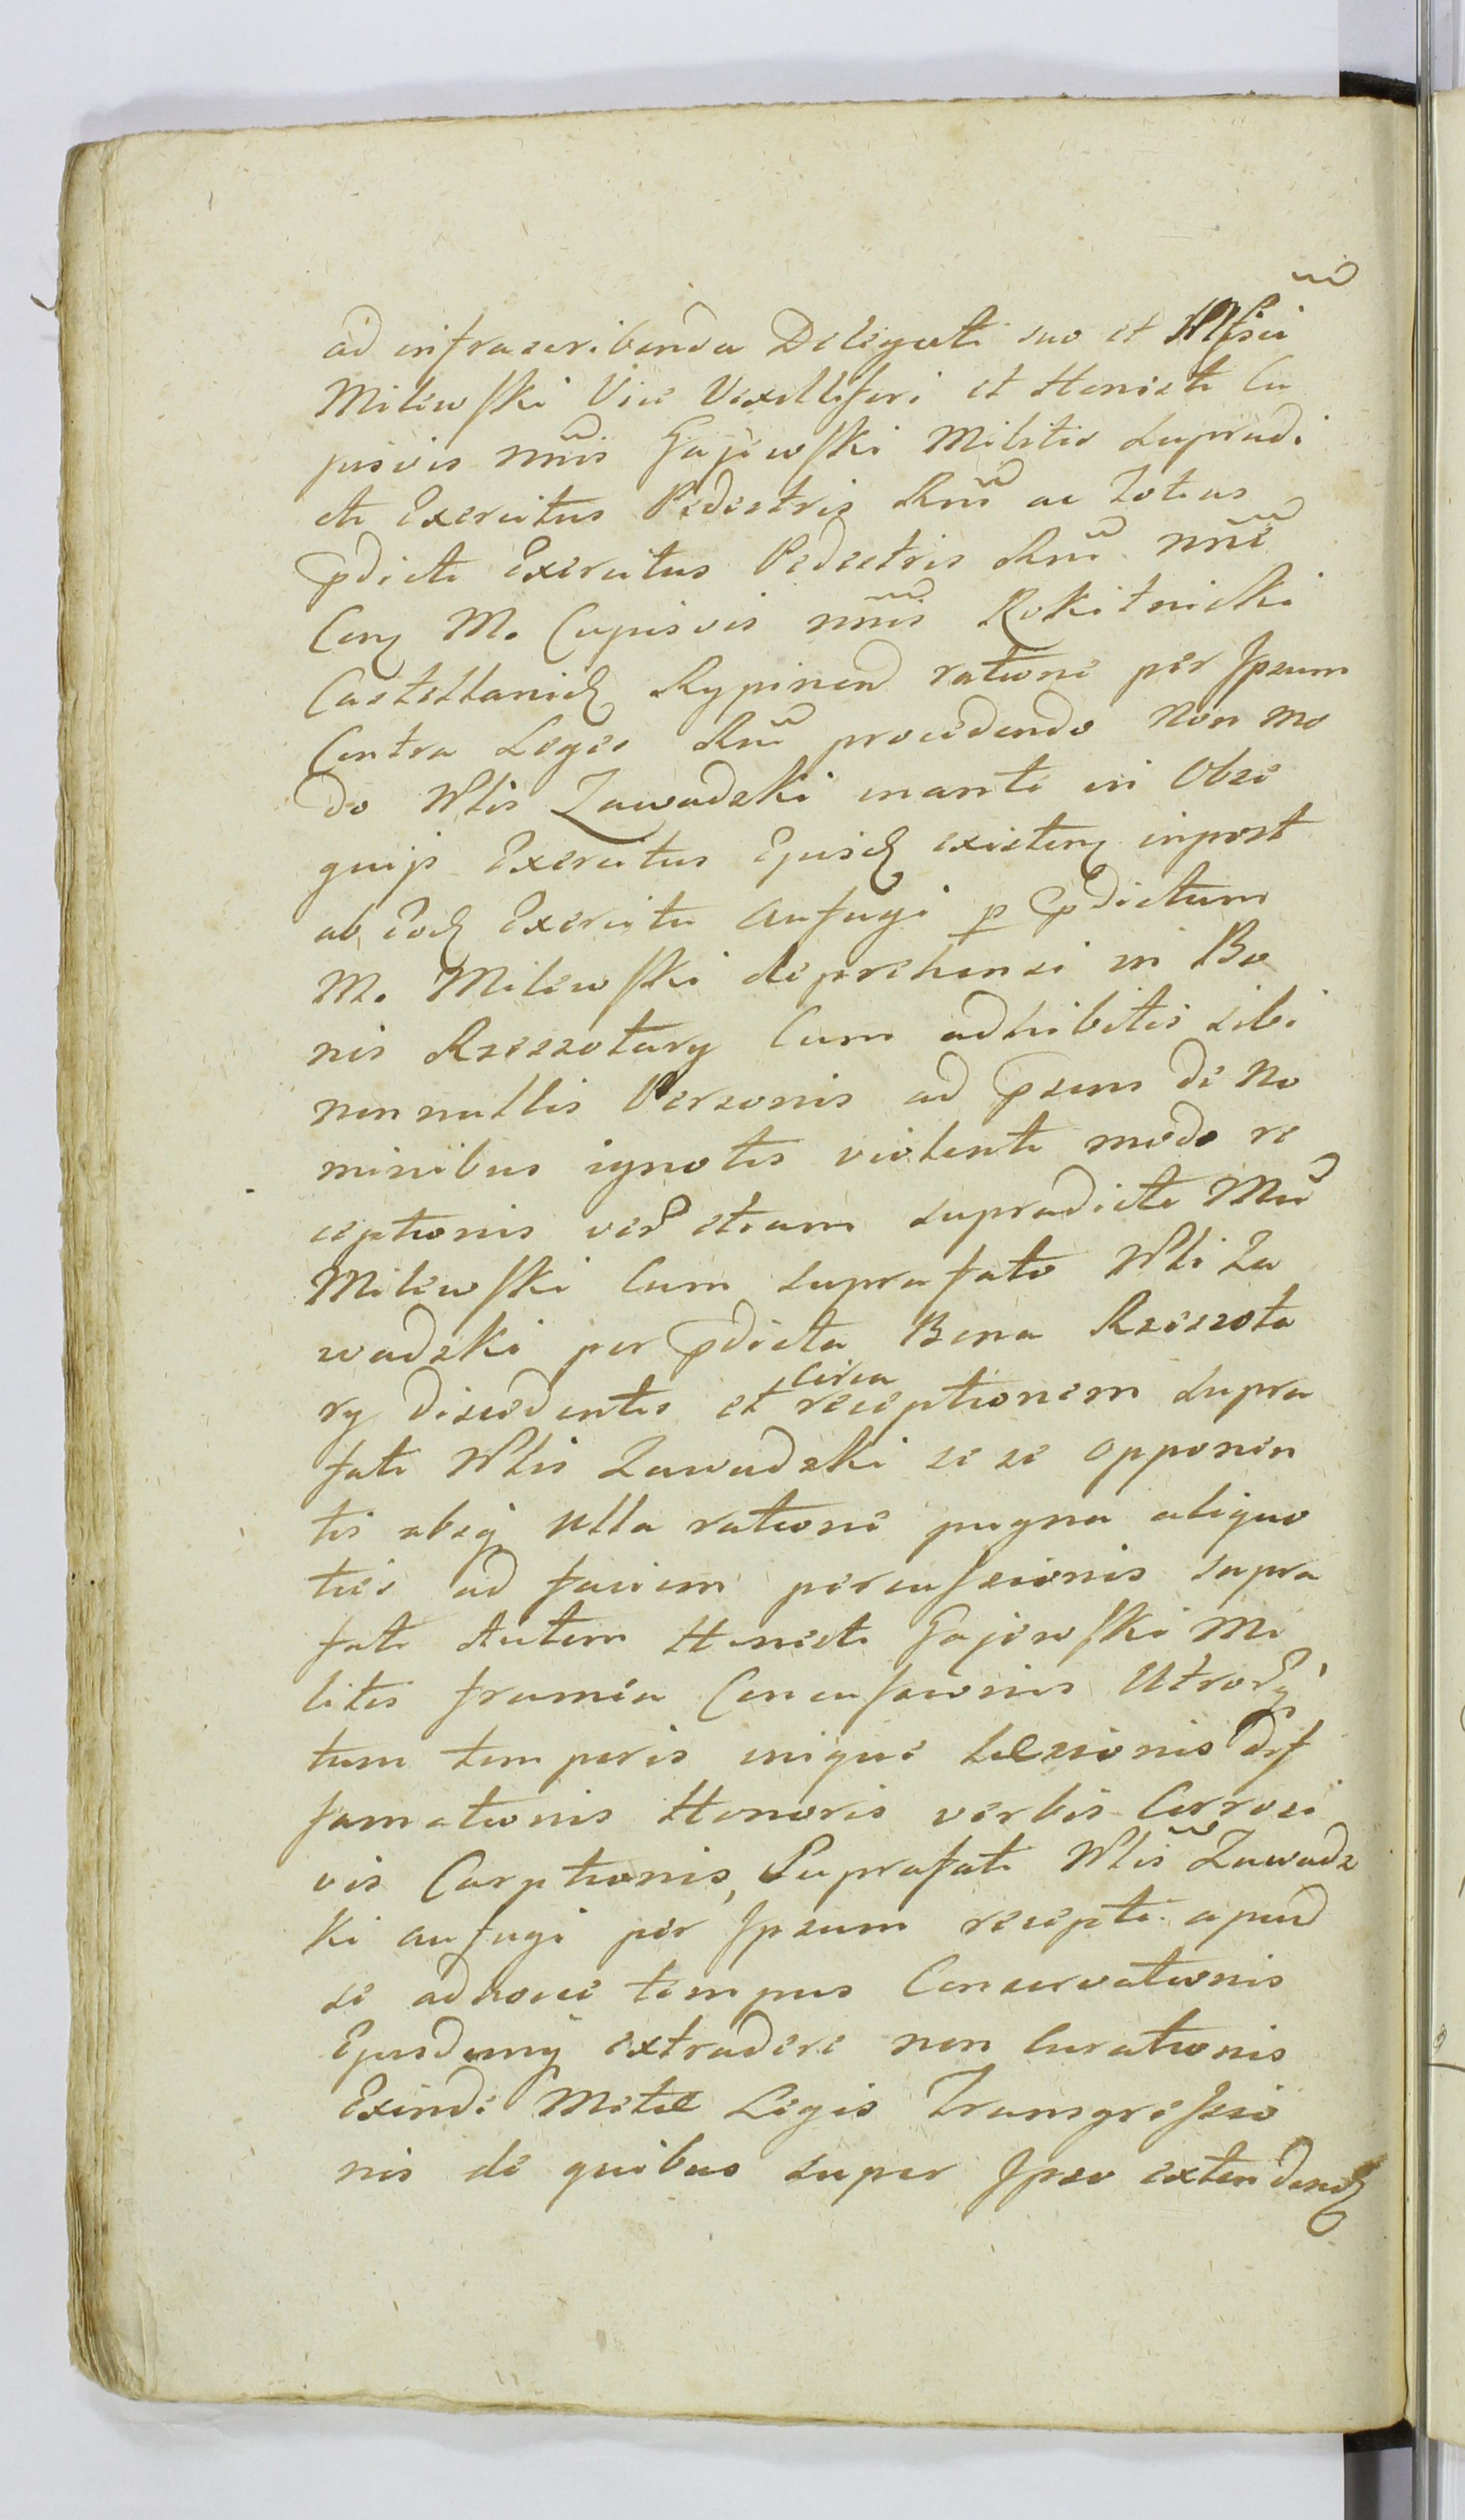 ad infrascribenda Delegati suo et Mfici
Milewski Vice Vexilliferi et Honesti Cu
jusvis nnis Gajewski Militis supradi
cti Exercitus Pedestris Rni ac Totius
pdicti Exercitus Pedestris Rni nne
Conz M. Cujusvis nnis Rokitnicki
Castellanid Rypinen ratione per Ipsum
Contra Leges Rni procedendo Non mo
do Wlis Zawadzki inanti in Obse
quijs Exercitus Ejusd existenz inpost
ab Eod Exercitu aufugi p pdictum
M. Milewski deprehensi in Bo
nis Rzeszotary Cum adhibitis sibi
non nullis Personis ad psens de No
minibus ignotis violenti modo re
ceptionis ver etiam supradicti Mci
Milewski Cum suprafato Wli Za
wadzki per pdicta Bona Rzeszota
ry discedentis et circa receptionem supra
fati Wlis Zawadzki se se opponen
tis absq Ulla ratione pugna aliquo
ties ad faciem percussionis supra
fati Autem Honesti Gajewski Mi
litis framea Concussionis Utrorq
tum temporis inique Læsionis dif
famationis Honoris verbis Corrosi
vis Carptionis, Suprafati Wlis Zawadz
ki aufugi per Ipsum recepti apud
se adhocce tempus Conservationis
Ejusdemq extradere non Curationis
Exinde Metæ Legis Transgressio
nis de quibus super Ipso extendend